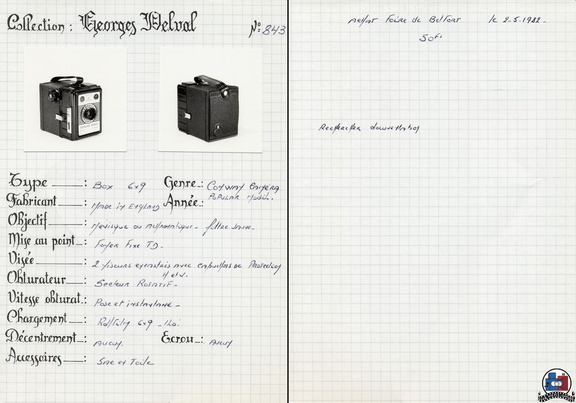 Collection : Georges Delval
N°: 843
Type : Box 6x9
Genre : Conway Camera
Popular Model.
Fabricant : Made in England
Année :
Objectif : Ménisque ou Achromatique - filtre
Mise au point : Foyer Fixe
Visée : 2 viseurs avec de Protection
H et V.
Obturateur : Secteur Rotatif -
Vitesse obturat. : Pose et instantané -
Chargement : Rollfilm 6x9 - 120.
Décentrement : Aucun
Ecrou : Aucun
Accessoires : Sac en Toile
Achat Foire de Belfort le 2.5.1982.
50F.
Recherche documentation